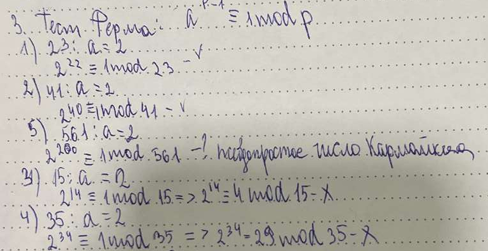 3. Тест Ферма: a^p-1 ≡ 1 mod p
1) 23: a = 2
2^22 ≡ 1 mod 23 - √
2) 41: a = 2
2^40 ≡ 1 mod 41 - √
5) 561: a = 2
≡ 1 mod 561 - ! псевдопростое число Кармайкла
3) 15: a = 2
2^14 ≡ 1 mod 15 => 2^14 ≡ 4 mod 15 - X
4) 35: a = 2
2^34 ≡ 1 mod 35 => 2^34 = 29 mod 35 - X